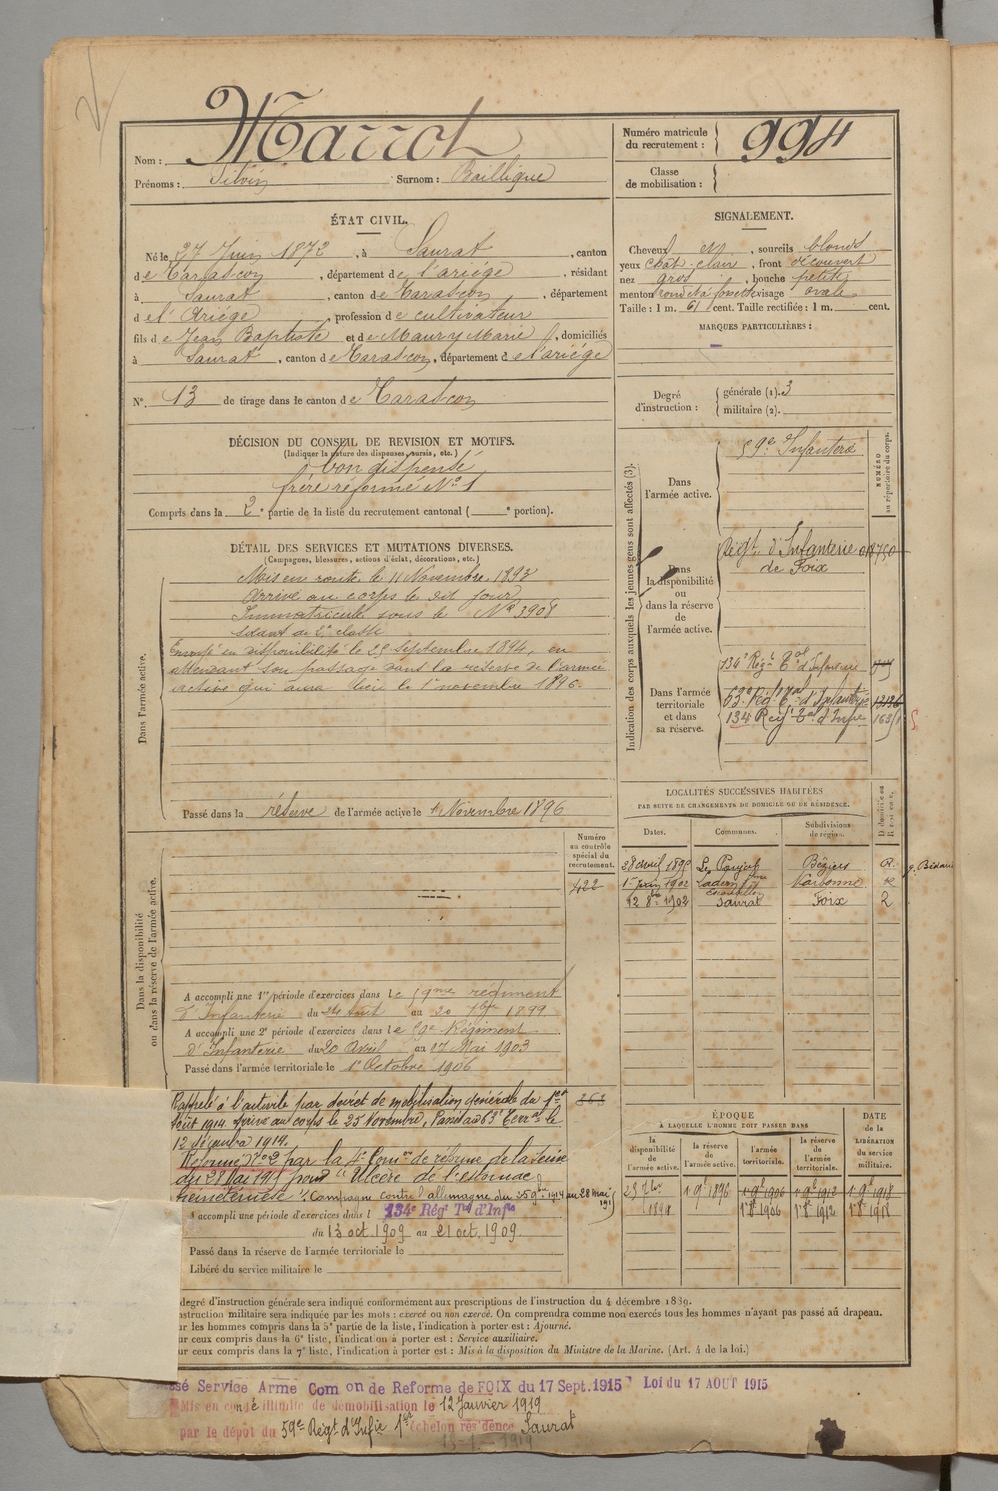 Marrot
Nom :
Prénoms : Silvin Surnom : Baillique
Numéro matricule du recrutement : 994
Classe de mobilisation :
ÉTAT CIVIL.
Né le 27 Juin 1872, à Saurat, canton
de Tarascon, département de l'ariége, résidant
à Saurat, canton de Tarascon, département
de l'Ariége, profession de cultivateur
fils de Jean Baptiste et de Maury Marie, domiciliés
à Saurat, canton de Tarascon, département de l'ariége
N° 13 de tirage dans le canton de Tarascon
SIGNALEMENT.
Cheveux, sourcils blonds
yeux chât-clair, front découvert
nez gros, bouche petite
menton rond et à fossette visage ovale
Taille : 1 m. 61 cent. Taille rectifiée : 1 m. cent.
MARQUES PARTICULIÈRES :
Degré d'instruction : générale (1). 3
militaire (2).
DÉCISION DU CONSEIL DE REVISION ET MOTIFS.
(Indiquer la nature des dispenses, sursis, etc.)
bon dispensé
frère réformé N° 1
Compris dans la 2e partie de la liste du recrutement cantonal ( e portion).
DÉTAIL DES SERVICES ET MUTATIONS DIVERSES.
(Campagnes, blessures, actions d'éclat, décorations, etc.)
Dans l'armée active.
Mis en route le 11 Novembre 1893
Arrivé au corps le dit jour
Immatriculé sous le N° 3908
soldat de 2e classe
Envoyé en disponibilité le 25 septembre 1894, en
attendant son passage dans la réserve de l'armée
active qui aura lieu le 1er novembre 1896.
Passé dans la réserve de l'armée active le 1er Novembre 1896
Indication des corps auxquels les jeunes gens sont affectés (3).
NUMÉRO au répertoire du corps.
Dans l'armée active.
59e Infanterie
Dans la disponibilité ou dans la réserve de l'armée active.
Régt d'Infanterie
de Foix
Dans l'armée territoriale et dans sa réserve.
134e Régt Tal d'Infanterie
63e Régt Tal d'Infanterie
134 Régt Tal d'Infie
LOCALITÉS SUCCESSIVES HABITÉES
PAR SUITE DE CHANGEMENTS DE DOMICILE OU DE RÉSIDENCE.
Dates. Communes. Subdivisions de région. D domicile ou R résidence.
Béziers R.
Narbonne R
12 8bre 1902 Saurat Foix R
Dans la disponibilité ou dans la réserve de l'armée active.
Numéro au contrôle spécial du recrutement.
422
A accompli une 1re période d'exercices dans le 59me régiment
d'Infanterie du 24 Août au 20 7bre 1899
A accompli une 2e période d'exercices dans le 59e Régiment
d'Infanterie du 20 Avril au 17 Mai 1903
Passé dans l'armée territoriale le 1er Octobre 1906
Rappelé à l'activité par décret de mobilisation générale du 1er
Août 1914. Arrivé au corps le 25 Novembre, Passé au 63e Terral le
12 décembre 1914.
Réformé N° 2 par la 4e Comon de réforme de la Seine
du 28 Mai 1915 pour "Ulcère de l'estomac"
Campagne contre l'allemagne du 25 9bre 1914 au 28 mai 1915
accompli une période d'exercices dans l 134e Régt Tal d'Infie
du 13 oct. 1909 au 21 oct. 1909.
Passé dans la réserve de l'armée territoriale le
Libéré du service militaire le
ÉPOQUE
A LAQUELLE L'HOMME DOIT PASSER DANS
la disponibilité de l'armée active. la réserve de l'armée active. l'armée territoriale. la réserve de l'armée territoriale.
DATE de la LIBÉRATION du service militaire.
1er 9bre 1896 1er 9bre 1906 1er 9bre 1912 1er 9bre 1918
1er 8bre 1906 1er 8bre 1912 1er 8bre 1918
degré d'instruction générale sera indiqué conformément aux prescriptions de l'instruction du 4 décembre 1889.
instruction militaire sera indiquée par les mots : exercé ou non exercé. On comprendra comme non exercés tous les hommes n'ayant pas passé au drapeau.
ur les hommes compris dans la 5e partie de la liste, l'indication à porter est : Ajourné.
ur ceux compris dans la 6e liste, l'indication à porter est : Service auxiliaire.
ur ceux compris dans la 7e liste, l'indication à porter est : Mis à la disposition du Ministre de la Marine. (Art. 4 de la loi.)
sé Service Armé Com on de Reforme de FOIX du 17 Sept. 1915 Loi du 17 AOUT 1915
Mis en congé illimité de démobilisation le 12 Janvier 1919
par le dépôt du 59e Régt d'Infie 1er échelon résidence Saurat